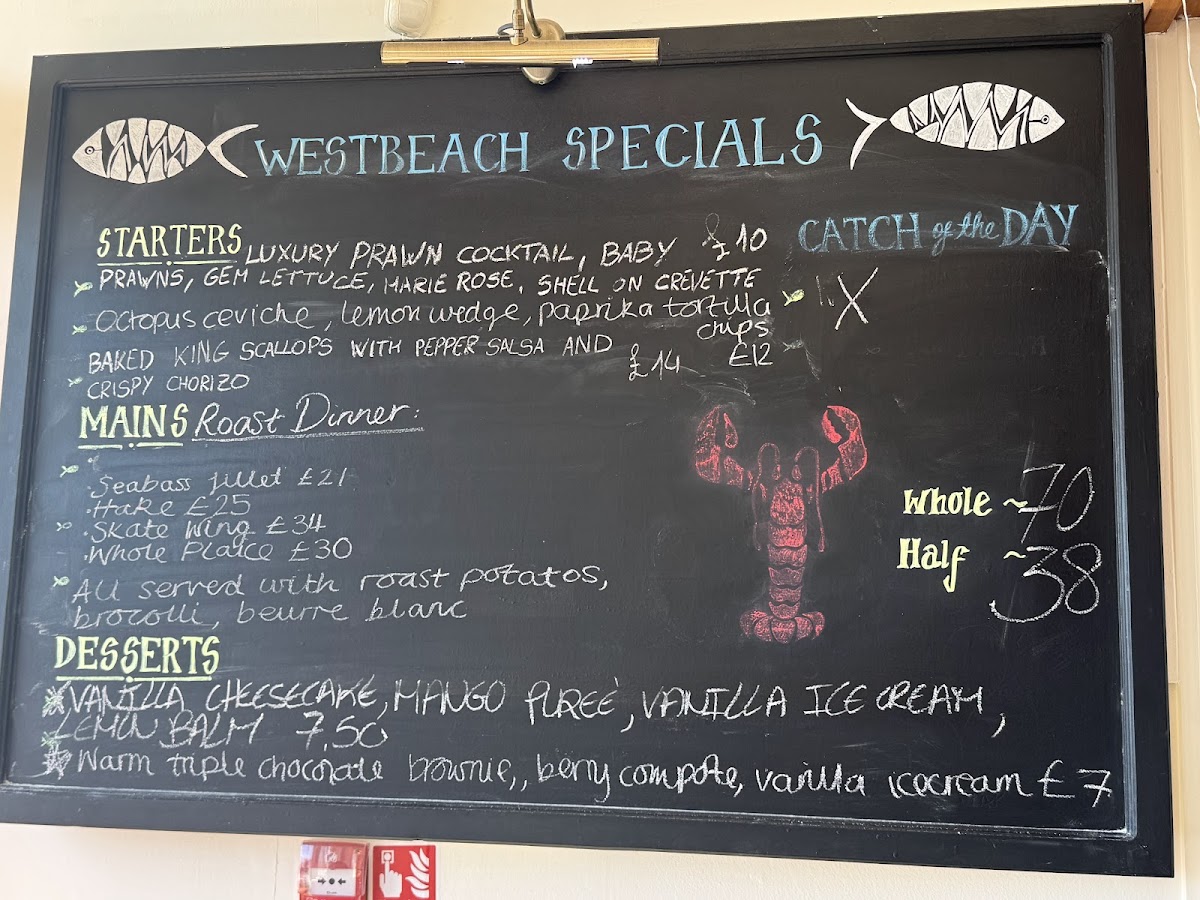 WESTBEACH SPECIALS
STARTERS LUXURY PRAWN COCKTAIL, BABY £10
PRAWNS, GEM LETTUCE, MARIE ROSE, SHELL ON CREVETTE
Octopus ceviche, lemon wedge, paprika tortilla
chips £12
BAKED KING SCALLOPS WITH PEPPER SALSA AND £14
CRISPY CHORIZO
MAINS Roast Dinner:
·Seabass fillet £21
·Hake £25
·Skate wing £34
·Whole Plaice £30
All served with roast potatos,
brocolli, beurre blanc
DESSERTS
VANILLA CHEESECAKE, MANGO PUREÉ, VANILLA ICE CREAM,
LEMON BALM 7,50
Warm triple chocolate brownie,, berry compote, vanilla icecream £7
CATCH of the DAY
X
Whole ~70
Half ~38